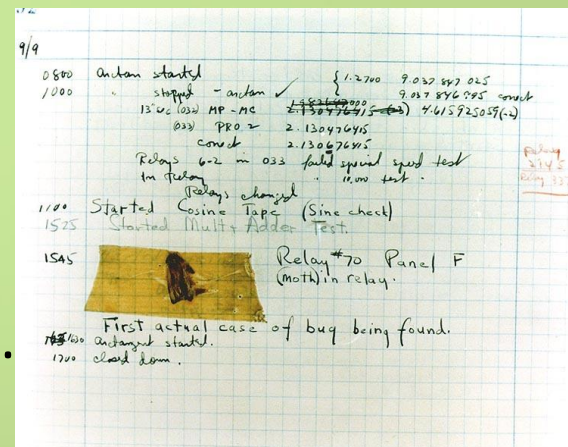 9/9
0800 Antan started
1000 " stopped - antan ✓ { 1.2700 9.037 847 025
9.037 846 995 conect
13"uc (032) MP - MC 2.130476415 (-3) 4.615925059(-2)
(033) PRO 2 2.130476415
conect 2.130676415
Relays 6-2 in 033 failed special speed test
in relay " 10,000 test .
Relays changed
1100 Started Cosine Tape (Sine check)
1525 Started Mult + Adder Test.
1545 Relay #70 Panel F
(moth) in relay.
First actual case of bug being found.
1630 antangent started.
1700 closed down .
Relay
2145
Relay 337